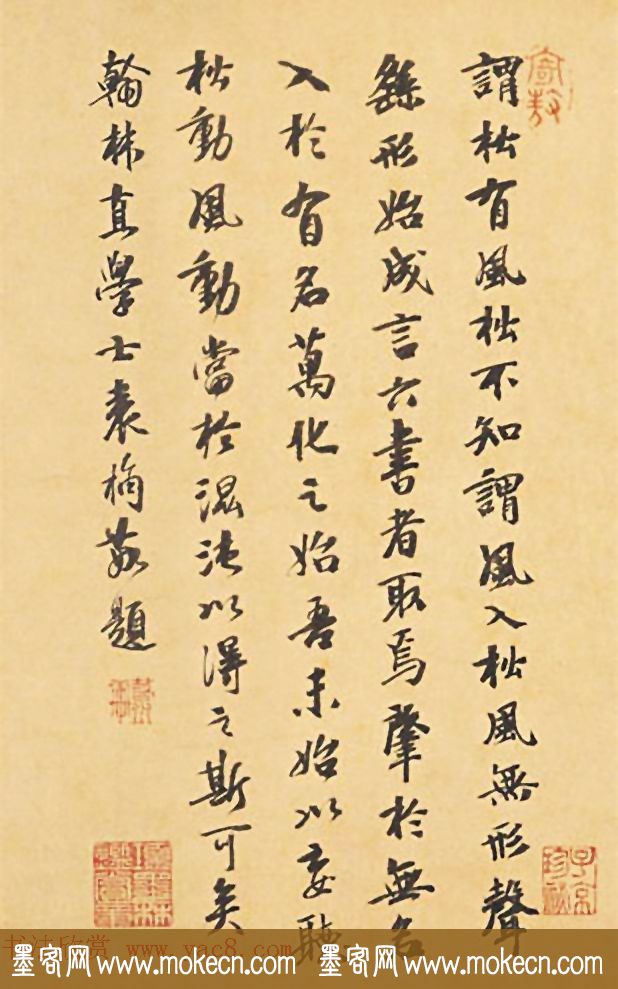 謂松有風松不知謂風入松風無形聲
繇形始成言六書者取焉肇於無名
入於有名萬化之始吾未始以妄聽
松動風動當於混沌以得之斯可矣
翰林直學士袁桷敬題
书法欣赏 www.yac8.com
墨客网 www.mokecn.com 墨客网 www.mokecn.com